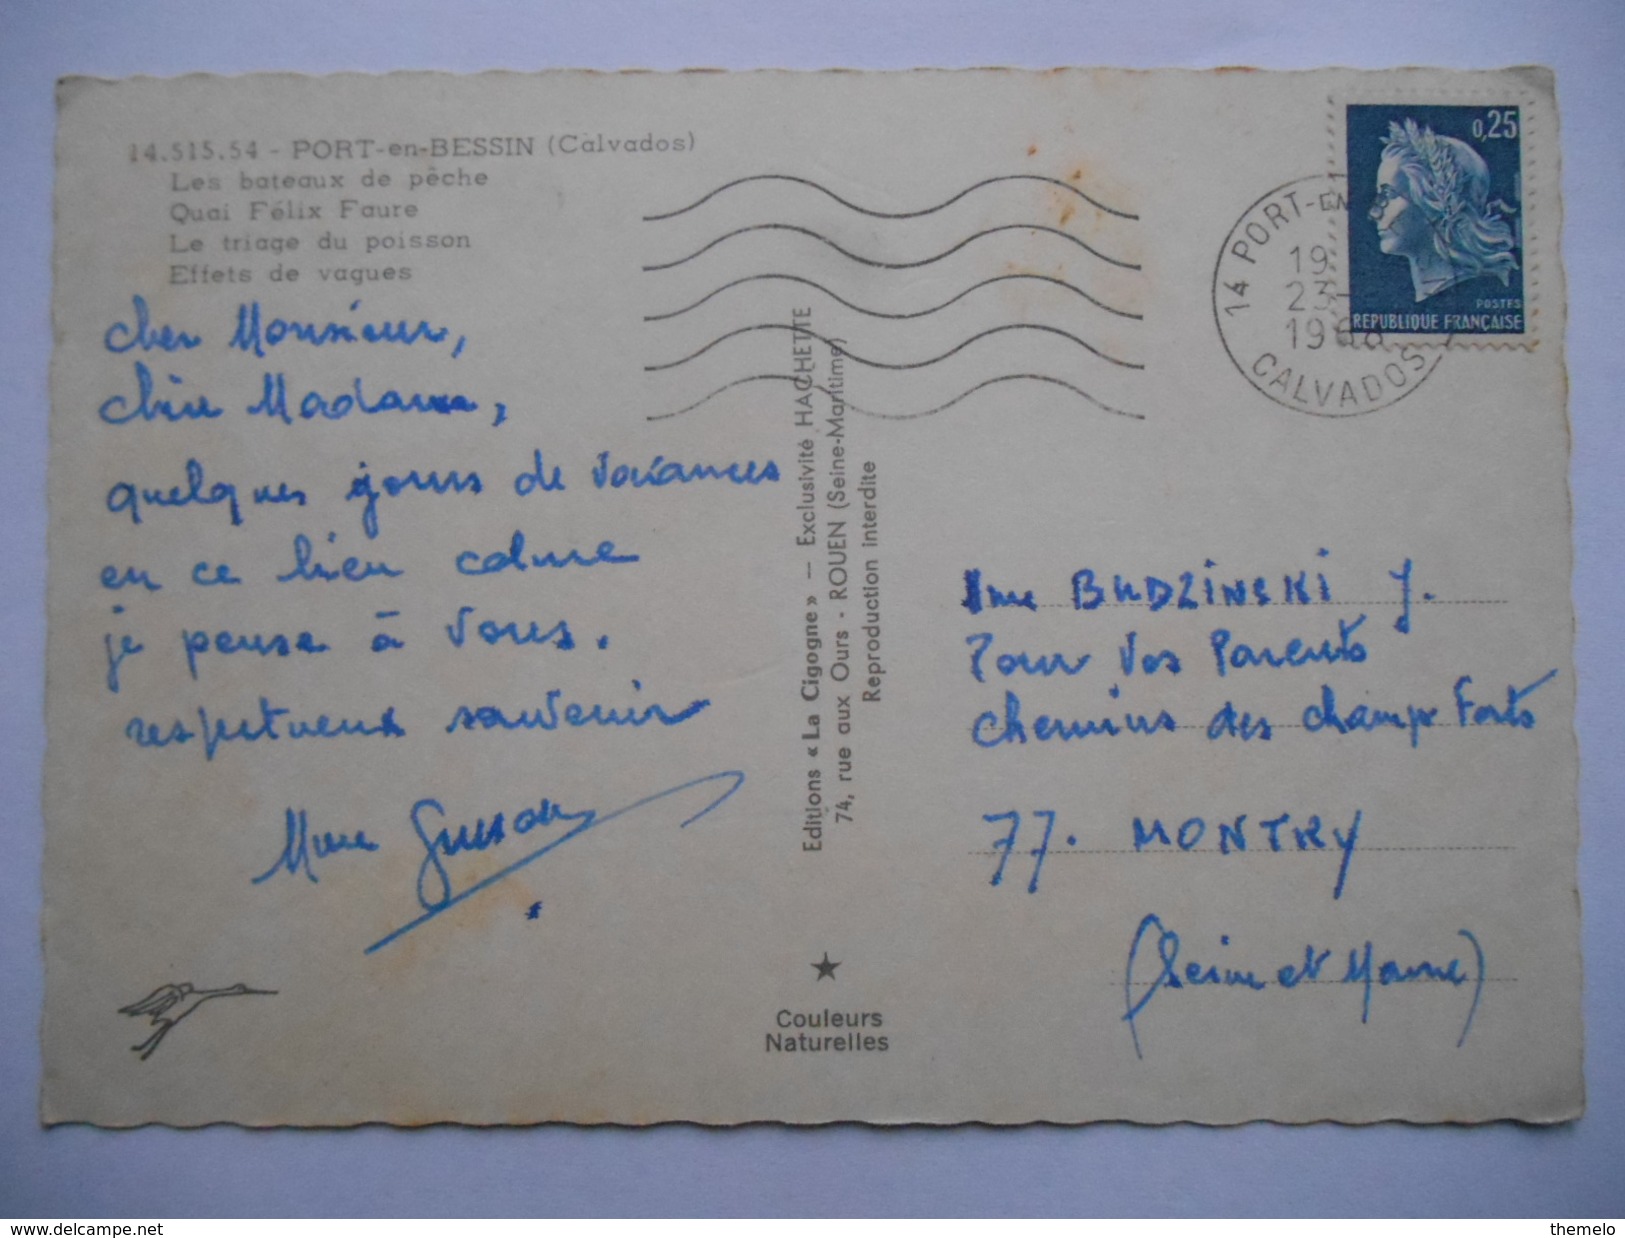 14.515.54 - PORT-en-BESSIN (Calvados)
Les bateaux de pêche
Quai Félix Faure
Le triage du poisson
Effets de vagues
cher Monsieur,
chère Madame,
quelques jours de vacances
en ce lieu calme
je pense à vous.
respectueux souvenir
Mme
Editions « La Cigogne » — Exclusivité HACHETTE
74, rue aux Ours - ROUEN (Seine-Maritime)
Reproduction interdite
Couleurs
Naturelles
0,25
POSTES
REPUBLIQUE FRANÇAISE
14 PORT-EN-
CALVADOS
19
23-
1968
Mme BUDZINSKI J.
Pour vos Parents
chemins des champs Forts
77. MONTRY
(Seine et Marne)
www.delcampe.net
themelo